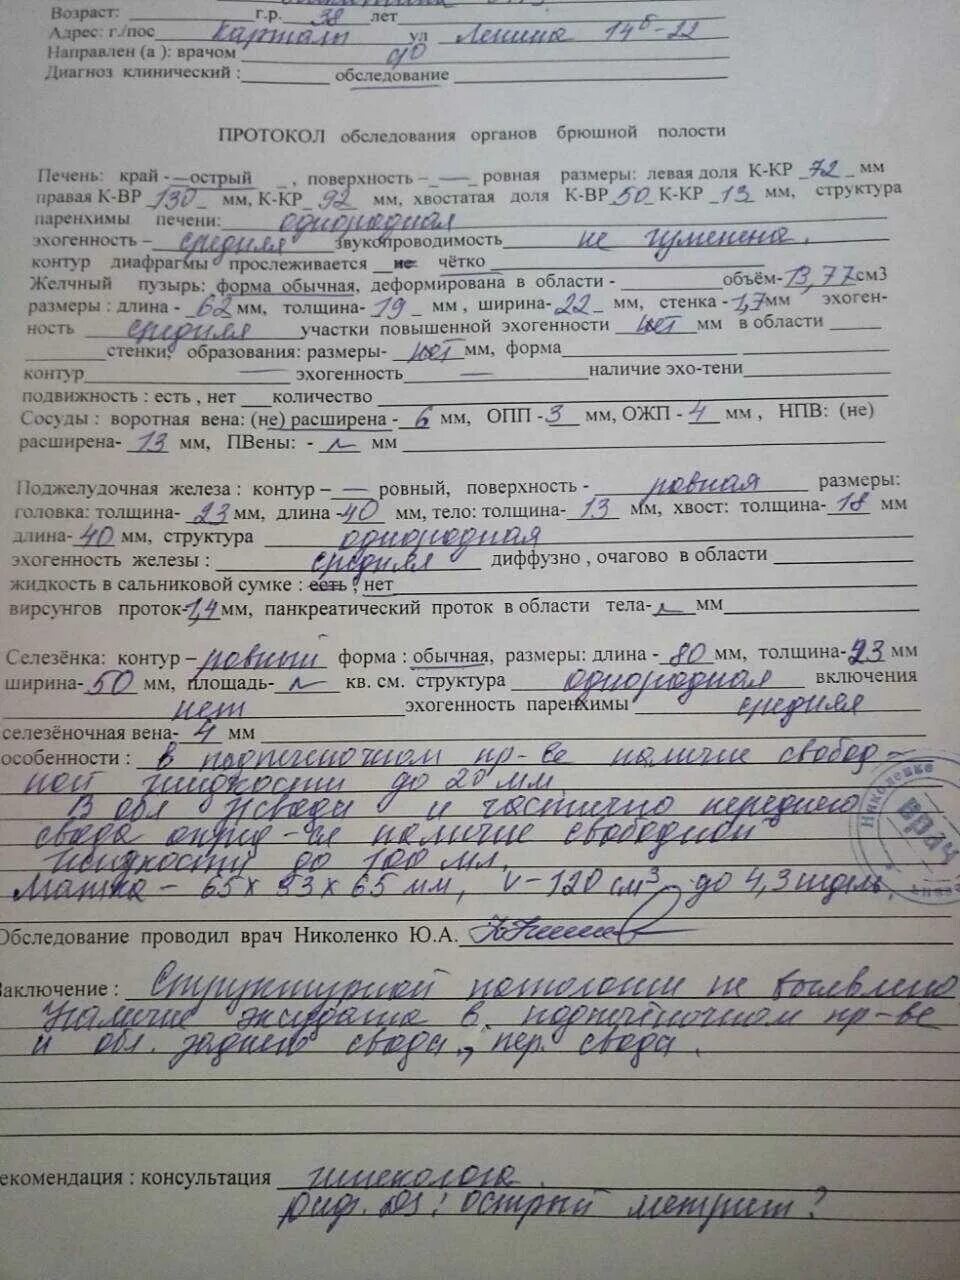 Возраст: г.р. 38 лет
Адрес: г./пос Карталы ул Ленина 14б-22
Направлен (а ): врачом
Диагноз клинический : обследование
ПРОТОКОЛ обследования органов брюшной полости
Печень: край - острый , поверхность - — ровная размеры: левая доля К-КР 72 мм
правая К-ВР 130 мм, К-КР 92 мм, хвостатая доля К-ВР 50 К-КР 13 мм, структура
паренхимы печени: однородная
эхогенность – средняя звукопроводимость не изменена.
контур диафрагмы прослеживается не чётко
Желчный пузырь: форма обычная, деформирована в области - объём- 13,77 см3
размеры : длина - 62 мм, толщина- 19 мм , ширина- 22 мм, стенка - 1,7 мм эхоген-
ность средняя участки повышенной эхогенности нет мм в области
стенки, образования: размеры- нет мм, форма
контур — эхогенность — наличие эхо-тени
подвижность : есть , нет количество
Сосуды : воротная вена: (не) расширена - 6 мм, ОПП - 3 мм, ОЖП - 4 мм , НПВ: (не)
расширена- 13 мм, ПВены: - мм
Поджелудочная железа : контур – — ровный, поверхность - ровная размеры:
головка: толщина- 23 мм, длина - 40 мм, тело: толщина- 13 мм, хвост: толщина- 18 мм
длина- 40 мм, структура однородная
эхогенность железы : средняя диффузно , очагово в области
жидкость в сальниковой сумке : есть , нет
вирсунгов проток- 1,4 мм, панкреатический проток в области тела- мм
Селезёнка: контур – ровный форма : обычная, размеры: длина - 80 мм, толщина- 23 мм
ширина- 50 мм, площадь- кв. см. структура однородная включения
нет эхогенность паренхимы средняя
селезёночная вена- 4 мм
особенности : в подпеченочном пр-ве наличие свобод-
ной жидкости до 20 мм
В обл и частично переднего
свода наличие свободной
жидкости до 100 мл.
Матка – 65 х 53 х 65 мм, v – 120 см³ до 4,3 недель
Николенко
врач
Обследование проводил врач Николенко Ю.А.
Заключение : Структурной патологии не выявлено
Наличие экссудата в подпечёночном пр-ве
и обл. заднего свода, пер. свода.
рекомендация : консультация гинеколога
диф. DS: острый метрит?